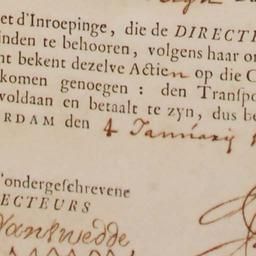 et d'Inroepinge, die de DIRECTE
inden te behooren, volgens haar o
nt bekent dezelve Actien op die C
komen genoegen : den Transpo
voldaan en betaalt te zyn, dus be
RDAM den 4 Januarij 1
'ondergeschrevene
ECTEURS